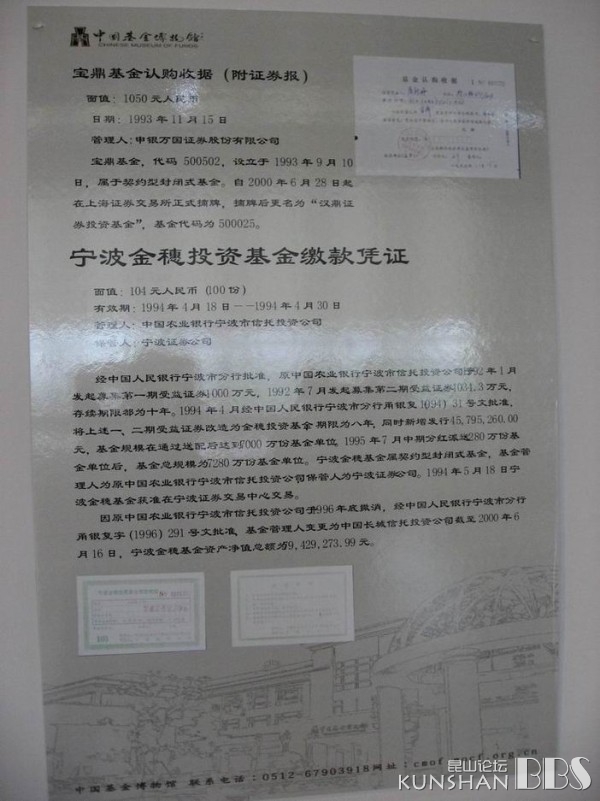 中国基金博物馆
CHINESE MUSEUM OF FUNDS
宝鼎基金认购收据（附证券报）
面值：1050元人民币
日期：1993年11月15日
管理人：申银万国证券股份有限公司
宝鼎基金，代码 500502，设立于 1993 年 9 月 10
日，属于契约型封闭式基金。自 2000 年 6 月 28 日起
在上海证券交易所正式摘牌，摘牌后更名为“汉鼎证
券投资基金”，基金代码为 500025。
基金认购收据
宁波金穗投资基金缴款凭证
面值：104元人民币（100份）
有效期：1994年4月18日－－1994年4月30日
管理人：中国农业银行宁波市信托投资公司
保管人：宁波证券公司
经中国人民银行宁波市分行批准，原中国农业银行宁波市信托投资公司于92年1月
发起募集第一期受益证券1000万元，1992年7月发起募集第二期受益证券1034.3万元，
存续期限都为十年。1994年4月经中国人民银行宁波市分行甬银复（094）31号文批准，
将上述一、二期受益证券改造为金穗投资基金，期限为八年，同时新增发行45,795,260.00
元，基金规模在通过送配后达到7000万份基金单位，1995年7月中期分红派送280万份基
金单位后，基金总规模为7280万份基金单位。宁波金穗基金属契约型封闭式基金，基金管
理人为原中国农业银行宁波市信托投资公司，保管人为宁波证券公司。1994年5月18日宁
波金穗基金获准在宁波证券交易中心交易。
因原中国农业银行宁波市信托投资公司于1996年底撤消，经中国人民银行宁波市分行
甬银复字（1996）291号文批准，基金管理人变更为中国长城信托投资公司。截至2000年6
月16日，宁波金穗基金资产净值总额为79,429,273.99元。
中国基金博物馆 联系电话：0512-67903918 网址：
昆山论坛
KUNSHAN BBS